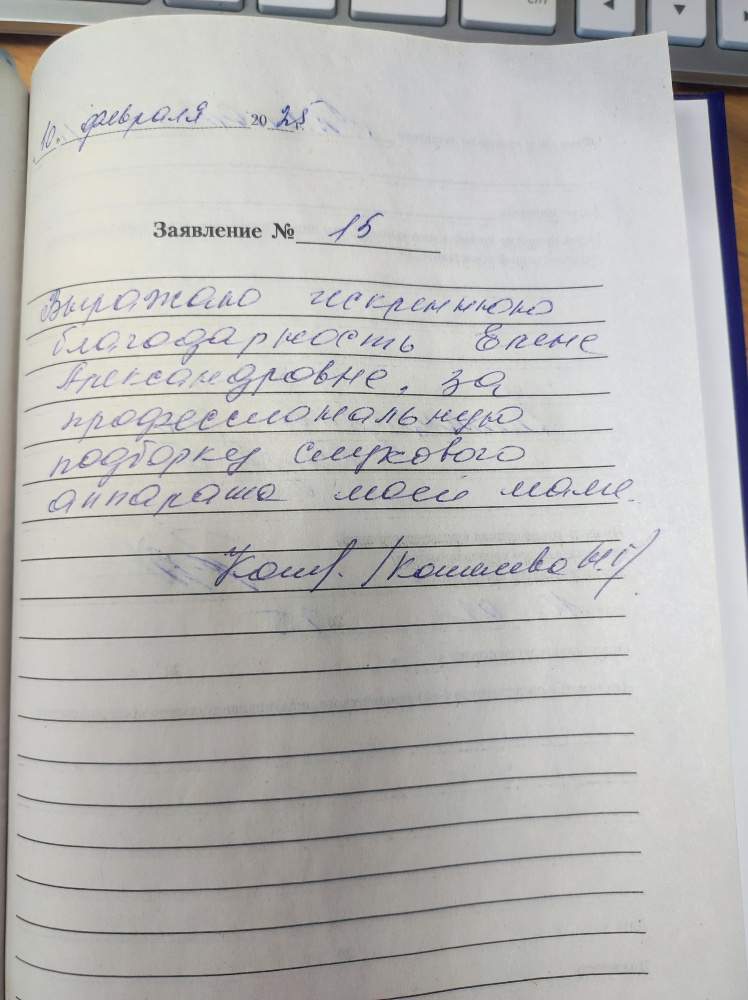 10. февраля 2025 г.
Заявление № 15
Выражаю искреннюю
благодарность Елене
Александровне, за
профессиональную
подборку слухового
аппарата моей маме.